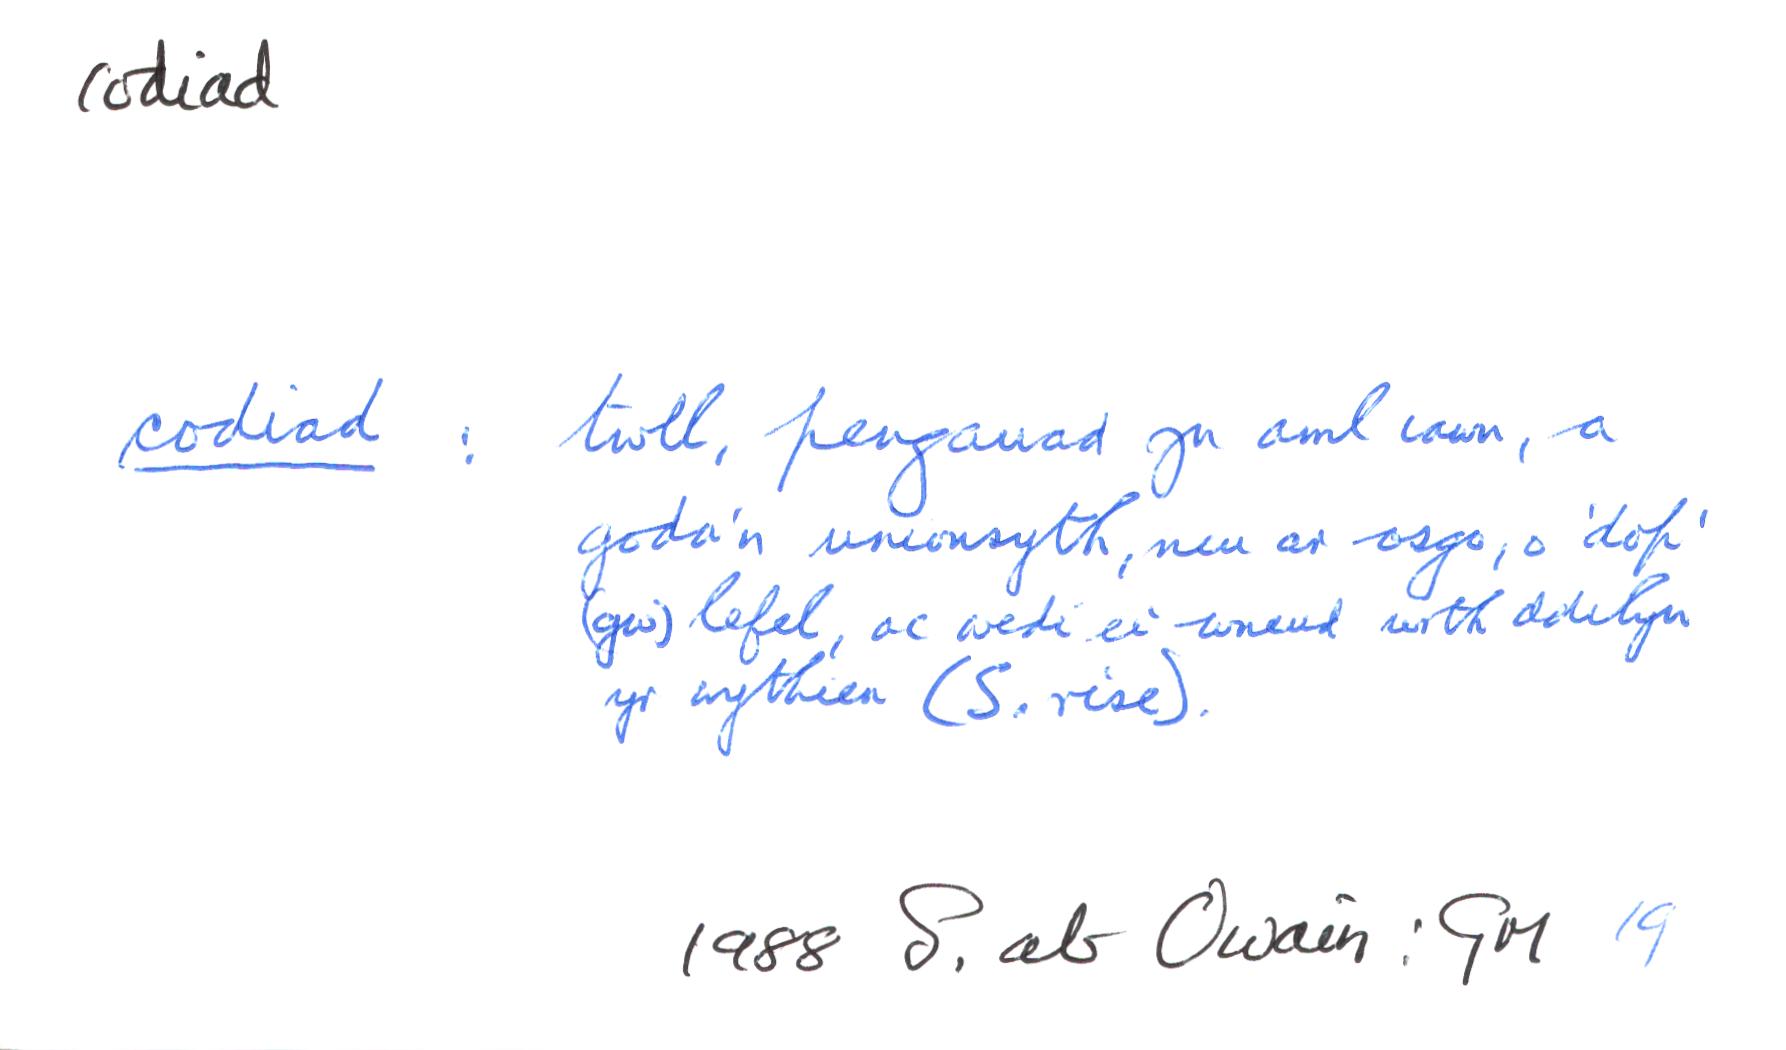 codiad
codiad : twll, pengauad yn aml iawn, a
goda'n unionsyth, neu ar osgo, o 'dop'
(gw) lefel, ac wedi ei wneud wrth ddilyn
yr wythïen (S. rise).
1988 S. ab Owain : GM 19